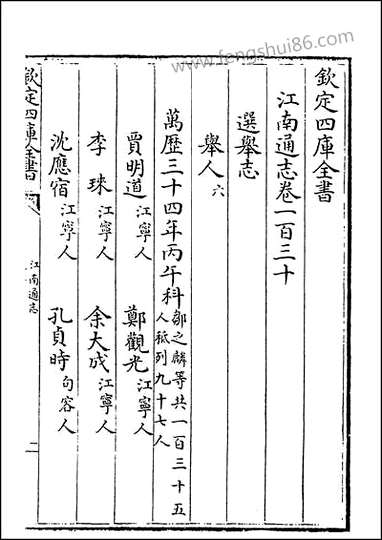 www.fengshui86.com
欽定四庫全書
江南通志卷一百三十
選舉志
舉人六
萬歷三十四年丙午科鄒之麟等共一百三十五人祗列九十七人
賈明道江寧人 鄭觀光江寧人
李琜江寧人 余大成江寧人
沈應宿江寧人 孔貞時句容人
欽定四庫全書 江南通志 二